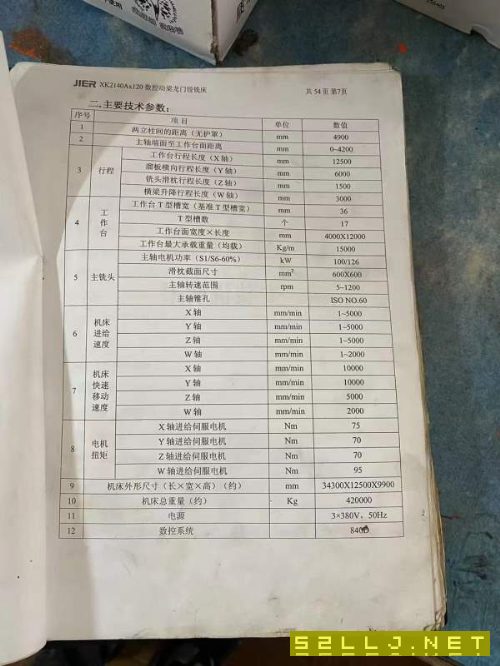 JIER XK2140Ax120 数控动梁龙门镗铣床 共 54 页 第7页
二.主要技术参数：
序号 项目 单位 数值
1 两立柱间的距离（无护罩） mm 4900
2 主轴端面至工作台面距离 mm 0~4200
3 行程 工作台行程长度（X 轴） mm 12500
溜板横向行程长度（Y 轴） mm 6000
铣头滑枕行程长度（Z 轴） mm 1500
横梁升降行程长度（W 轴） mm 3000
4 工作台 工作台 T 型槽宽（基准 T 型槽宽） mm 36
T 型槽数 个 17
工作台面宽度×长度 mm 4000X12000
工作台最大承载重量（均载） Kg/m 15000
5 主铣头 主轴电机功率（S1/S6-60%） kW 100/126
滑枕截面尺寸 mm² 600X600
主轴转速范围 rpm 5~1200
主轴锥孔 ISO NO.60
6 机床进给速度 X 轴 mm/min 1~5000
Y 轴 mm/min 1~5000
Z 轴 mm/min 1~5000
W 轴 mm/min 1~2000
7 机床快速移动速度 X 轴 mm/min 10000
Y 轴 mm/min 10000
Z 轴 mm/min 5000
W 轴 mm/min 2000
8 电机扭矩 X 轴进给伺服电机 Nm 75
Y 轴进给伺服电机 Nm 70
Z 轴进给伺服电机 Nm 70
W 轴进给伺服电机 Nm 95
9 机床外形尺寸（长×宽×高）（约） mm 34300X12500X9900
10 机床总重量（约） Kg 420000
11 电源 3×380V，50Hz
12 数控系统 840D
52LLJ.NET